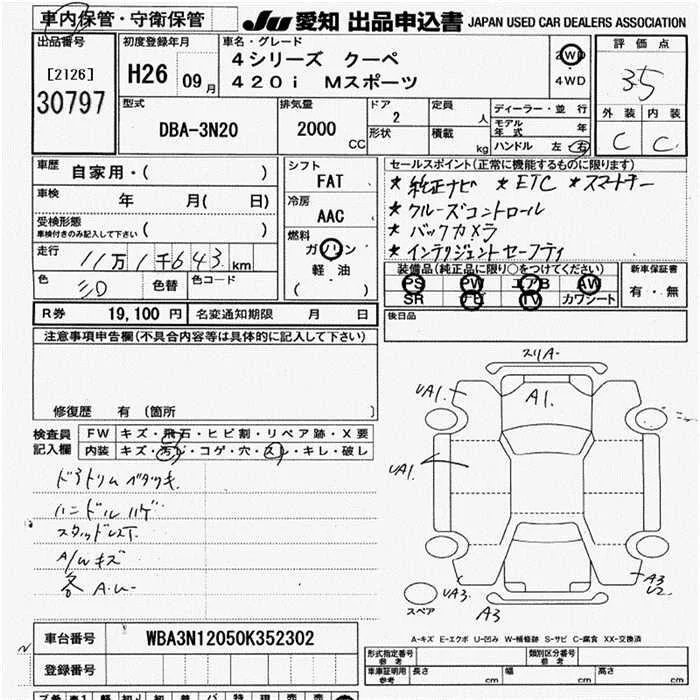 車内保管・守衛保管 JU 愛知 出品申込書 JAPAN USED CAR DEALERS ASSOCIATION
出品番号 初度登録年月 車名・グレード 評価点
[2126] H26 09月 4シリーズ クーペ 2WD 3.5
30797 420i Mスポーツ 4WD
外装 内装
C C
型式 排気量 ドア 定員 ディーラー・並行
DBA-3N20 2000 CC 2 人 モデル年式 年
形状 積載 kg ハンドル 左 右
車歴 自家用・( ) シフト FAT
車検 年 月( 日) 冷房 AAC
受検形態 車検付きのみ記入して下さい ・( )
燃料 ガソリン 軽油 ( )
走行 11万1千643km
色 シロ 色替 色コード
セールスポイント(正常に機能するものに限ります)
★純正ナビ ★ETC ★スマートキー
★クルーズコントロール
★バックカメラ
★インテリジェントセーフティ
装備品(純正品に限り○をつけてください) 新車保証書
PS PW エアB AW 有・無
SR ナビ TV カワシート
R券 19,100円 名変通知期限 月 日 後日品
注意事項申告欄(不具合内容等は具体的に記入して下さい)
修復歴 有(箇所 )
検査員記入欄 FW キズ・飛石・ヒビ割・リペア跡・X要
内装 キズ・汚れ・コゲ・穴・スレ・キレ・破レ
ドアトリムベタツキ
ハンドルハゲ
スタッドレスT.
A/Wキズ
各A.U-
スリA-
UA1. A1.
UA1.
UA3. A3 A3 U2.
スペア
A-キズ E-エクボ U-凹み W-補修跡 S-サビ C-腐食 XX-交換済
車台番号 WBA3N12050K352302
登録番号
型式指定番号 参考 類別区分番号 参考
車庫証明用 参考 長さ cm 幅 cm 高さ cm